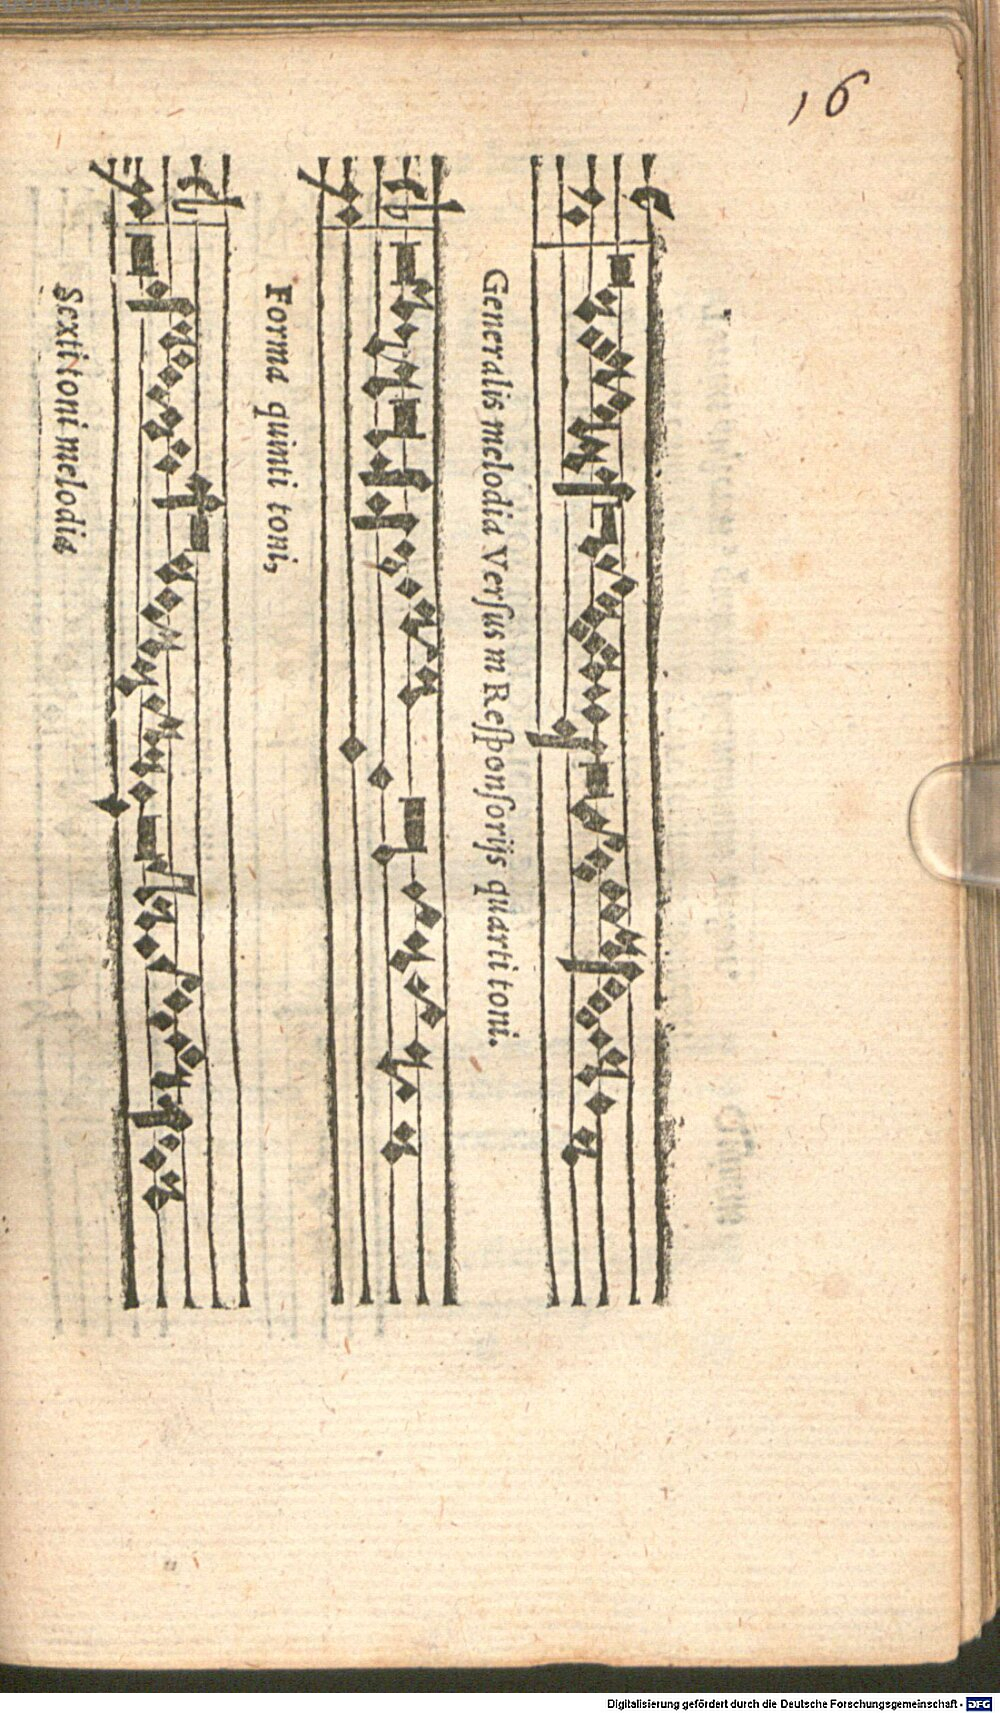 16
Generalis melodia Verſus in Reſponſorijs quarti toni.
Forma quinti toni,
Sexti toni melodia
Digitalisierung gefördert durch die Deutsche Forschungsgemeinschaft - DFG